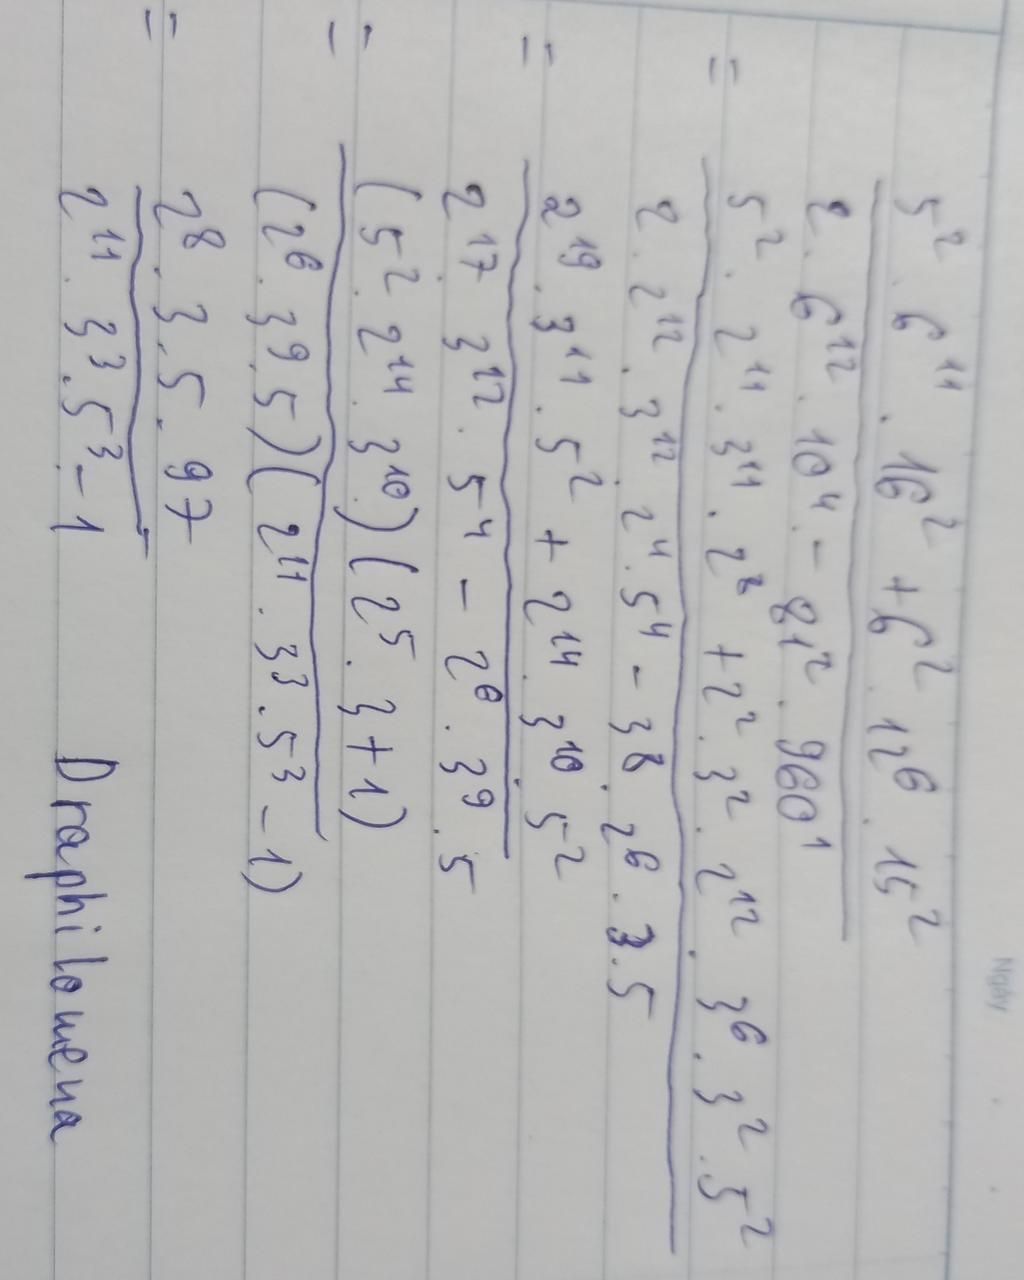 Ngày
5² . 6¹¹ . 16² + 6² . 12⁶ . 15²
2 . 6¹² . 10⁴ - 81² . 960¹
= 5² . 2¹¹ . 3¹¹ . 2⁸ + 2² . 3² . 2¹² . 3⁶ . 3² . 5²
2 . 2¹² . 3¹² . 2⁴ . 5⁴ - 3⁸ . 2⁶ . 3 . 5
= 2¹⁹ . 3¹¹ . 5² + 2¹⁴ . 3¹⁰ . 5²
2¹⁷ . 3¹² . 5⁴ - 2⁶ . 3⁹ . 5
= (5² . 2¹⁴ . 3¹⁰) (2⁵ . 3 + 1)
(2⁶ . 3⁹ . 5) (2¹¹ . 3³ . 5³ - 1)
= 2⁸ . 3 . 5 . 97
2¹¹ . 3³ . 5³ - 1
Draphilomena